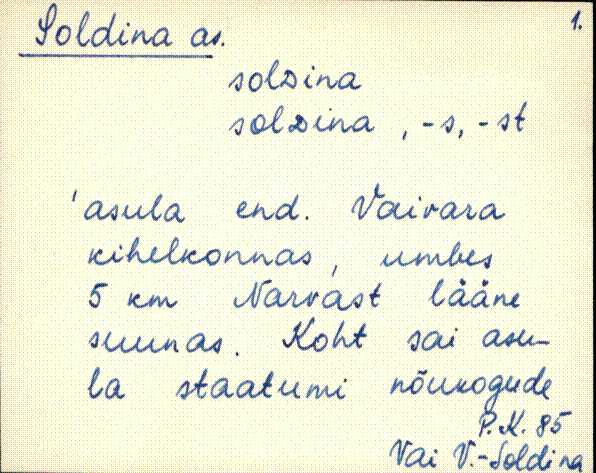 Soldina as.
1.
solᴅina
solᴅina , -s, -st
'asula end. Vaivara
kihelkonnas, umbes
5 km Narvast lääne
suunas. Koht sai asu-
la staatumi nõukogude
P.K. 85
Vai V.-Soldina